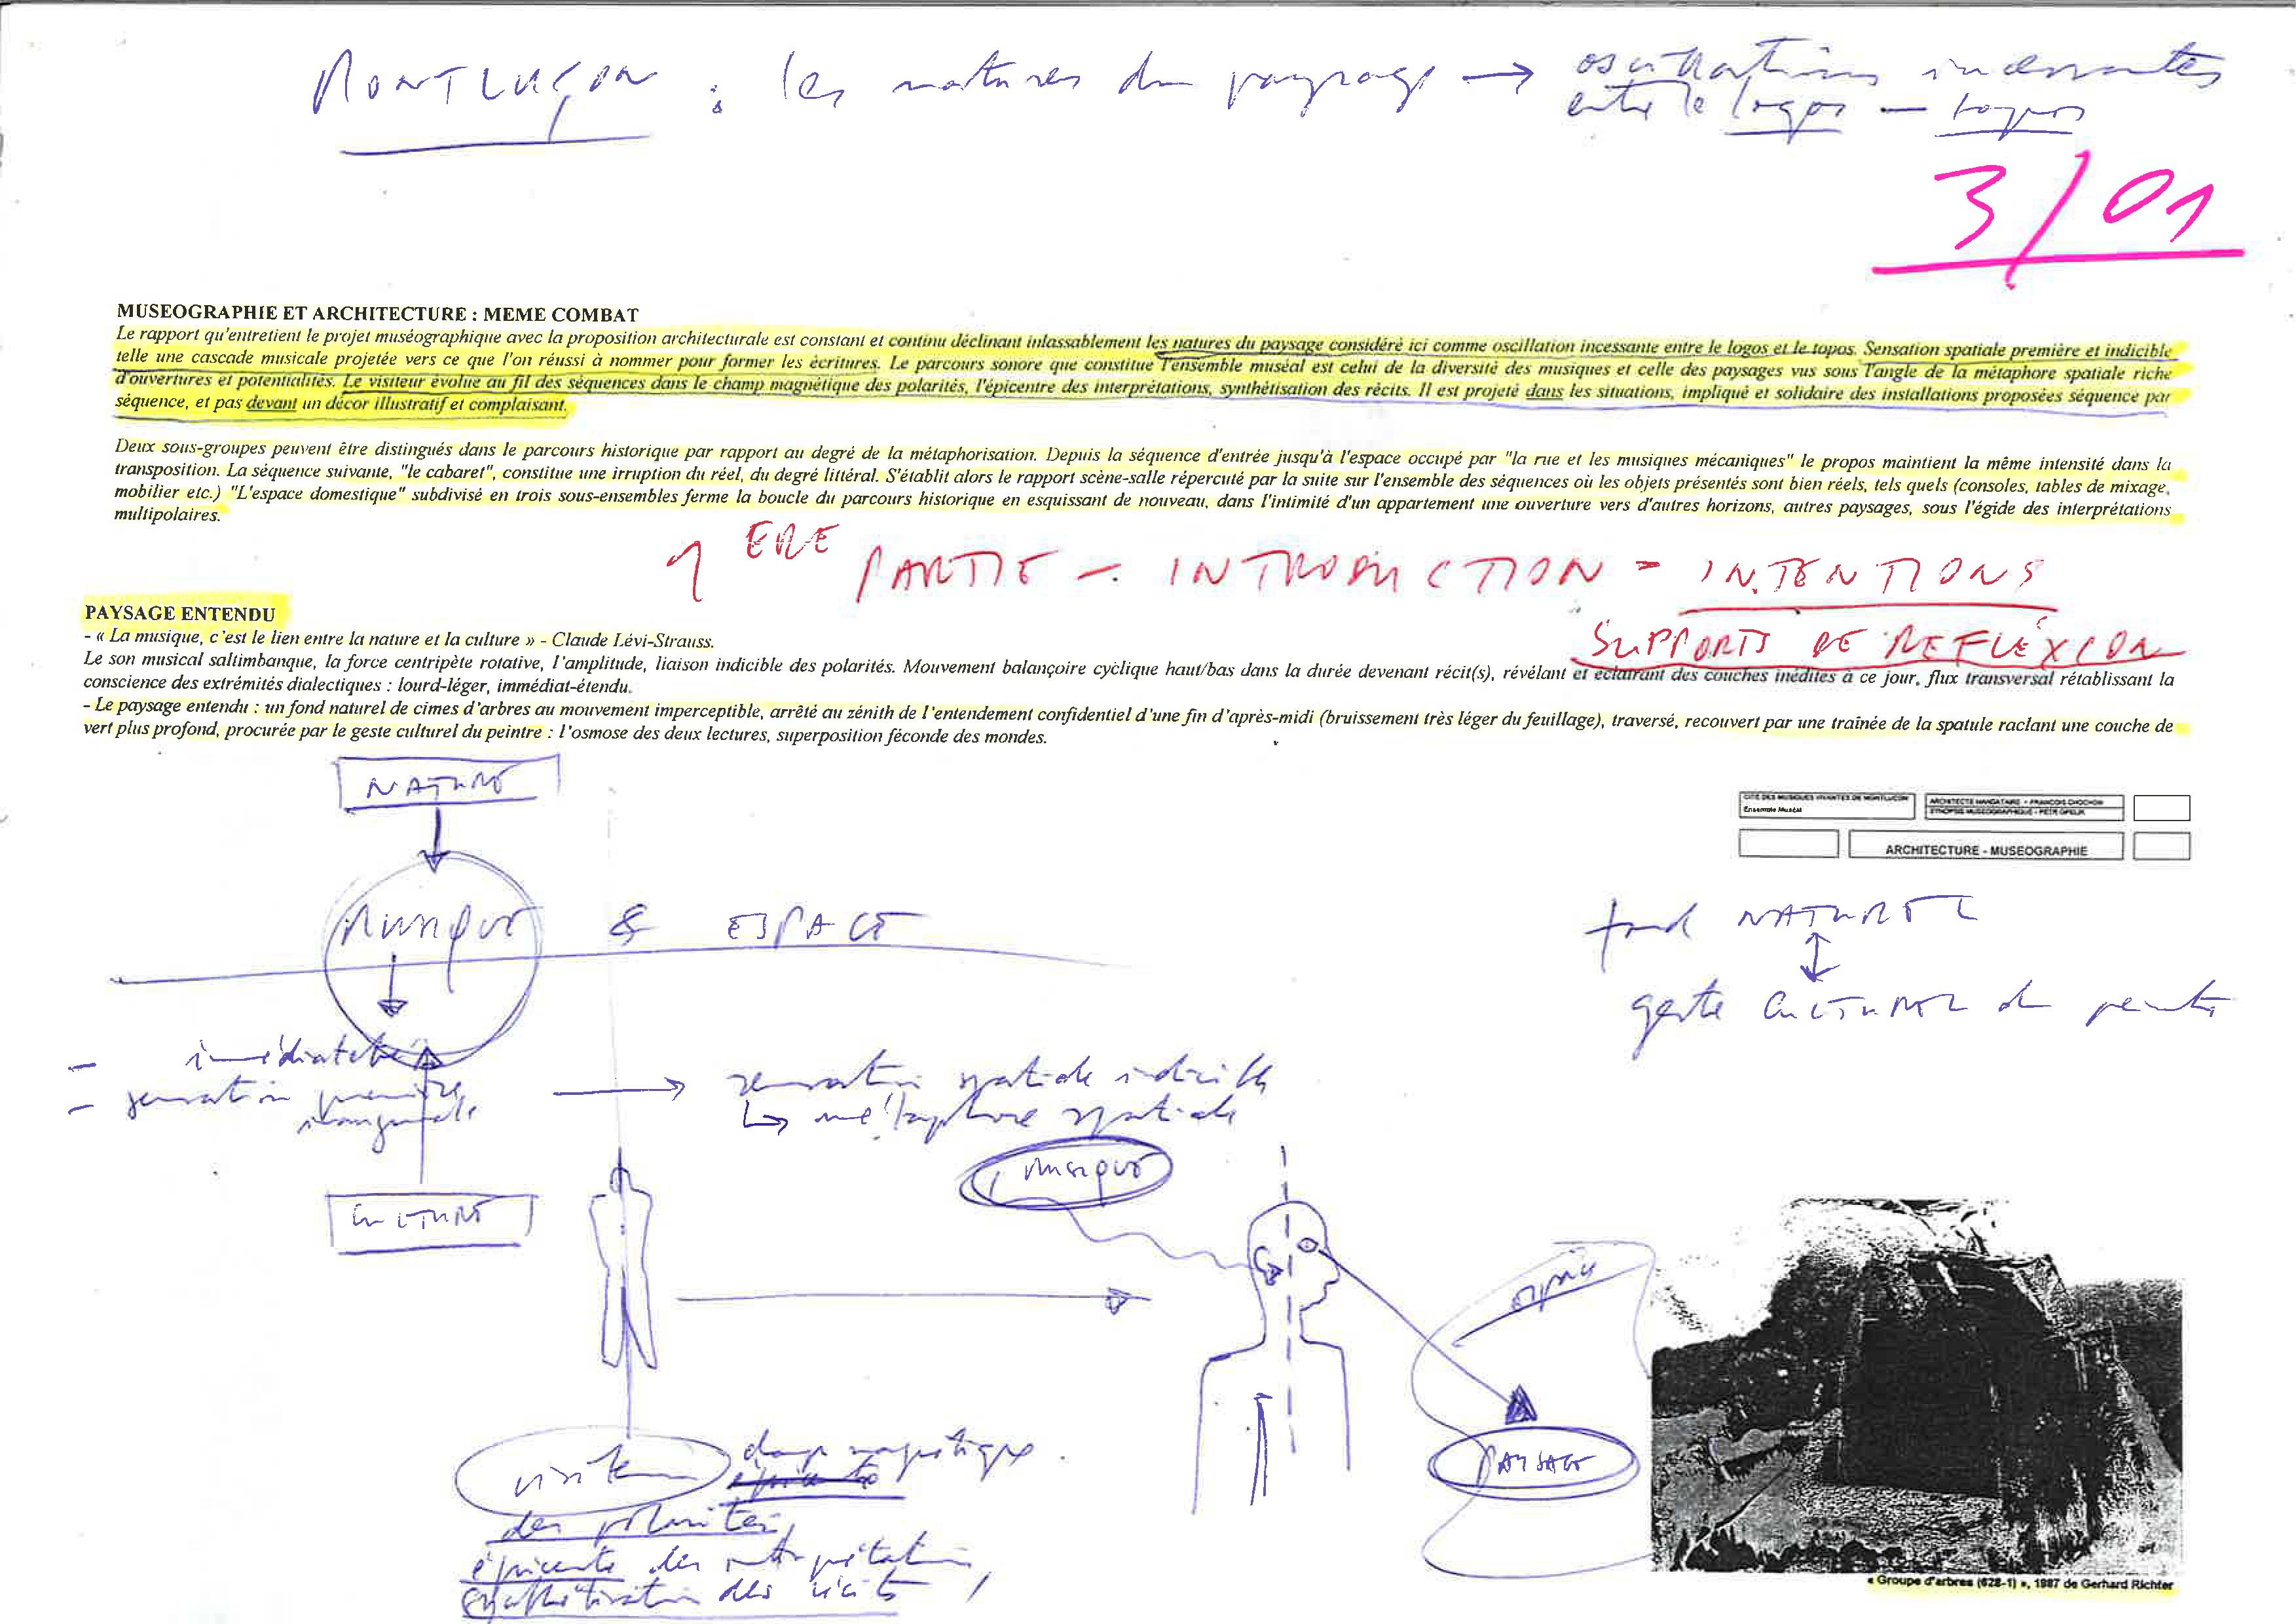 MONTLUÇON : les natures du paysage → oscillations incessantes
entre le logos — topos
3/01
MUSEOGRAPHIE ET ARCHITECTURE : MEME COMBAT
Le rapport qu'entretient le projet muséographique avec la proposition architecturale est constant et continu déclinant inlassablement les natures du paysage considéré ici comme oscillation incessante entre le logos et le topos. Sensation spatiale première et indicible
telle une cascade musicale projetée vers ce que l'on réussi à nommer pour former les écritures. Le parcours sonore que constitue l'ensemble muséal est celui de la diversité des musiques et celle des paysages vus sous l'angle de la métaphore spatiale riche
d'ouvertures et potentialités. Le visiteur évolue au fil des séquences dans le champ magnétique des polarités, l'épicentre des interprétations, synthétisation des récits. Il est projeté dans les situations, impliqué et solidaire des installations proposées séquence par
séquence, et pas devant un décor illustratif et complaisant.
Deux sous-groupes peuvent être distingués dans le parcours historique par rapport au degré de la métaphorisation. Depuis la séquence d'entrée jusqu'à l'espace occupé par "la rue et les musiques mécaniques" le propos maintient la même intensité dans la
transposition. La séquence suivante, "le cabaret", constitue une irruption du réel, du degré littéral. S'établit alors le rapport scène-salle répercuté par la suite sur l'ensemble des séquences où les objets présentés sont bien réels, tels quels (consoles, tables de mixage,
mobilier etc.) "L'espace domestique" subdivisé en trois sous-ensembles ferme la boucle du parcours historique en esquissant de nouveau, dans l'intimité d'un appartement une ouverture vers d'autres horizons, autres paysages, sous l'égide des interprétations
multipolaires.
1ERE PARTIE - INTRODUCTION = INTENTIONS
SUPPORTS DE REFLÉXION
PAYSAGE ENTENDU
- « La musique, c'est le lien entre la nature et la culture » - Claude Lévi-Strauss.
Le son musical saltimbanque, la force centripète rotative, l'amplitude, liaison indicible des polarités. Mouvement balançoire cyclique haut/bas dans la durée devenant récit(s), révélant et éclairant des couches inédites à ce jour, flux transversal rétablissant la
conscience des extrémités dialectiques : lourd-léger, immédiat-étendu.
- Le paysage entendu : un fond naturel de cimes d'arbres au mouvement imperceptible, arrêté au zénith de l'entendement confidentiel d'une fin d'après-midi (bruissement très léger du feuillage), traversé, recouvert par une traînée de la spatule raclant une couche de
vert plus profond, procurée par le geste culturel du peintre : l'osmose des deux lectures, superposition féconde des mondes.
NATURE
CITE DES MUSIQUES VIVANTES DE MONTLUCON
Ensemble Muséal
ARCHITECTE MANDATAIRE - FRANCOIS CHOCHON
SYNOPSIS MUSEOGRAPHIQUE - PETR OPELIK
ARCHITECTURE - MUSEOGRAPHIE
MUSIQUE & ESPACE
fond NATUREL
↕
geste CULTUREL du peintre
- immédiateté
- sensation première → sensation spatiale indicible
↳ métaphore spatiale
musique
CULTURE
espace
PAYSAGE
visiteur champ magnétique
des polarités,
épicentre des interprétations,
synthétisation des récits
« Groupe d'arbres (628-1) », 1987 de Gerhard Richter